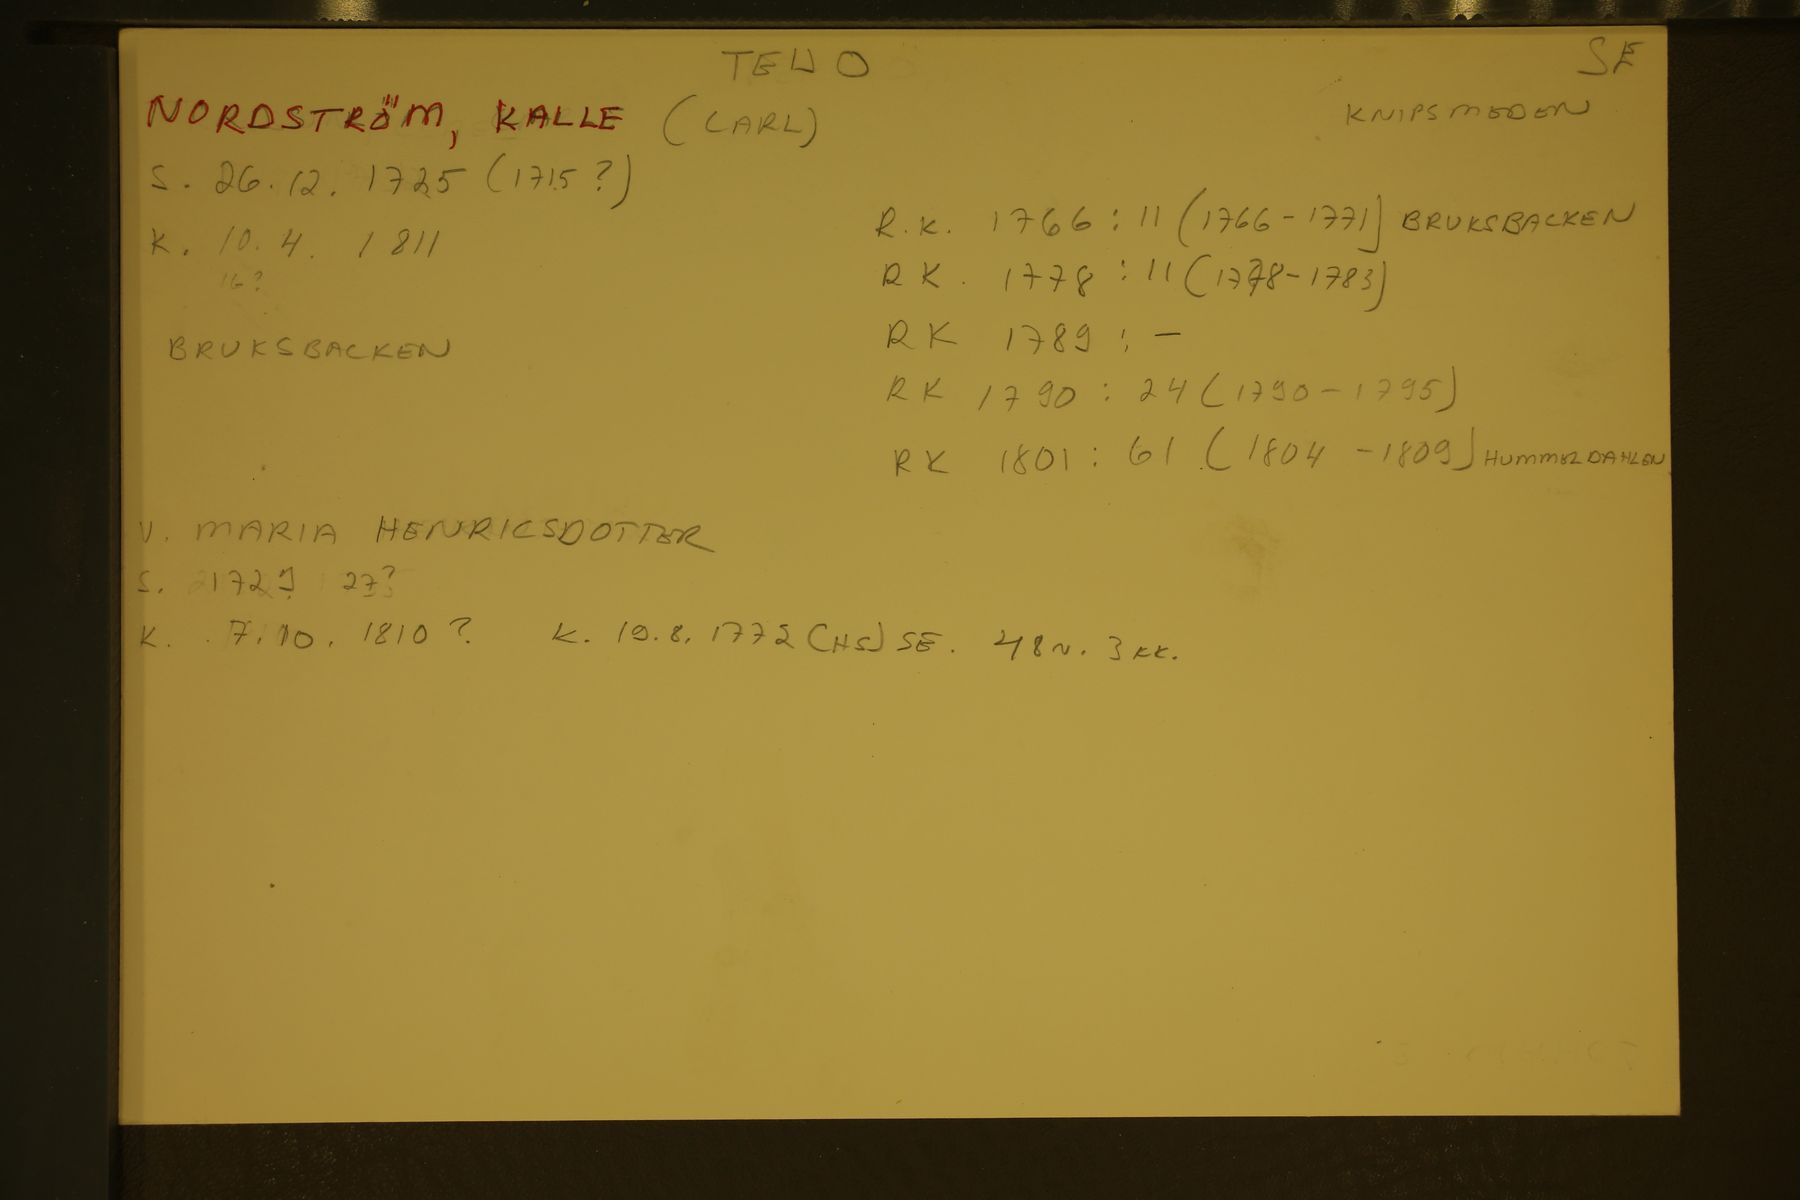 TEIJO
SE
NORDSTRÖM, KALLE (CARL)
KNIPSMEDEN
S. 26.12. 1725 (1715?)
K. 10.4. 1811
16?
BRUKSBACKEN
R.K. 1766: 11 (1766-1771) BRUKSBACKEN
RK. 1778: 11 (1778-1783)
RK 1789: -
RK 1790: 24 (1790-1795)
RK 1801: 61 (1804-1809) HUMMELDAHLEN
V. MARIA HENRICSDOTTER
S. 1729 27?
K. 7.10. 1810? K. 19.8. 1772 (HS) SE. 48 v. 3 KK.